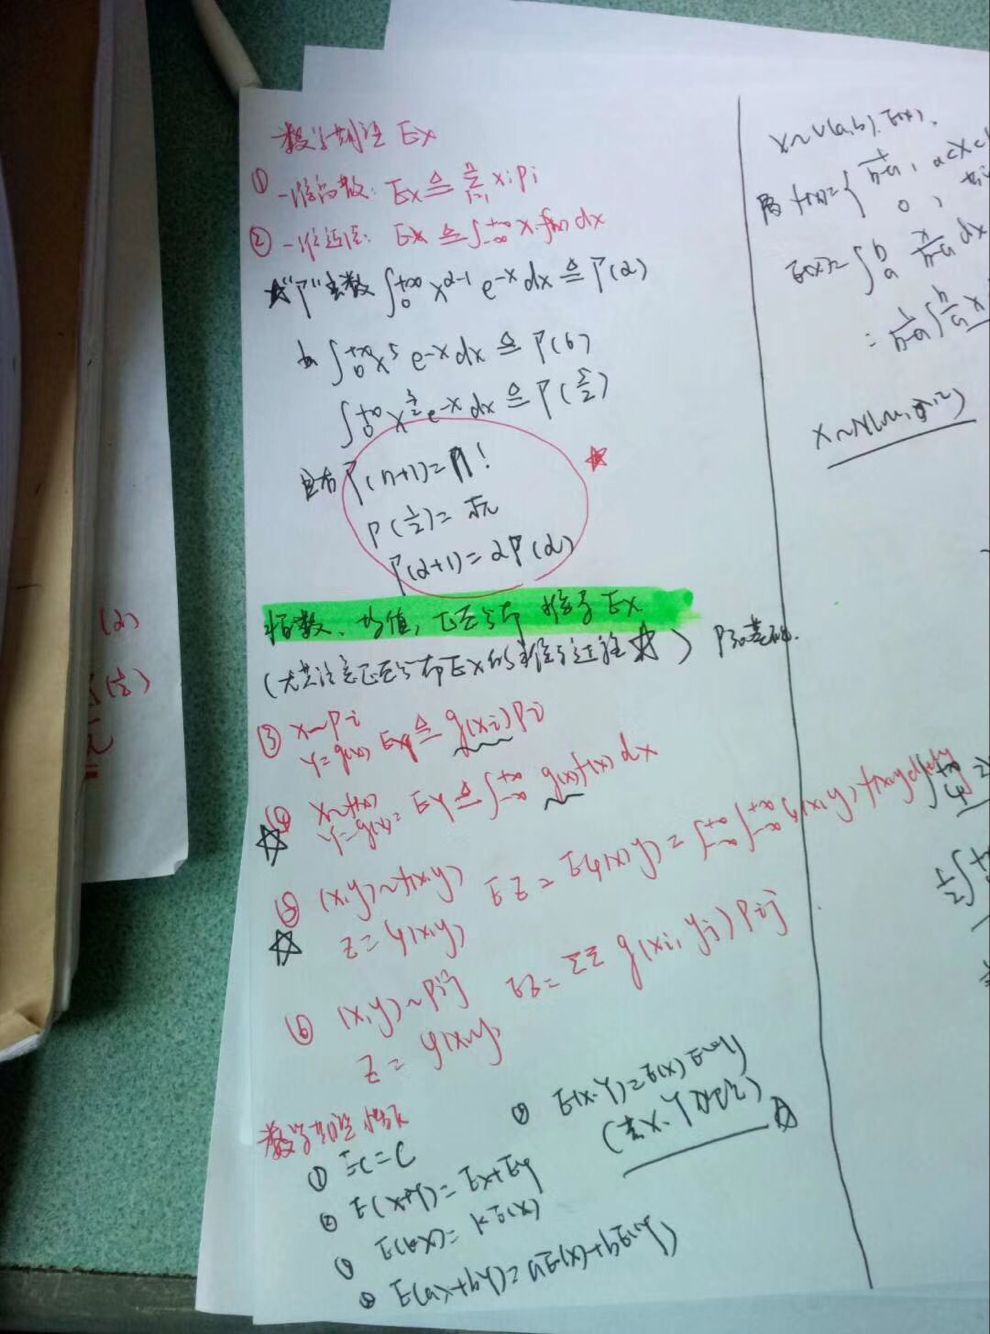 数学期望 Ex
① 一维离散: Ex ≜ Σ xi pi
② 一维连续: Ex ≜ ∫_{-∞}^{+∞} x·f(x) dx
☆"Γ"函数 ∫_0^{+∞} x^{α-1} e^{-x} dx ≜ Γ(α)
如 ∫_0^{+∞} x^5 e^{-x} dx ≜ Γ(6)
∫_0^{+∞} x^{3/2} e^{-x} dx ≜ Γ(5/2)
且有 Γ(n+1) = n!
Γ(1/2) = √π
Γ(α+1) = αΓ(α)
指数、均值, 正态分布 推导 Ex
(尤其注意正态分布Ex的推导过程 ☆)
③ x~Pi
y=g(x) Ey ≜ g(xi) Pi
④ x~f(x)
☆ y=g(x): EY ≜ ∫_{-∞}^{+∞} g(x) f(x) dx
⑤ (x,y)~f(x,y)
☆ z=φ(x,y) EZ = Eφ(x,y) = ∫_{-∞}^{+∞}∫_{-∞}^{+∞} φ(x,y) f(x,y)
⑥ (x,y)~Pij
z = g(x,y) EZ = ΣΣ g(xi, yj) Pij
数学期望性质
① EC=C
② E(x+y) = Ex+Ey
E(kx) = kE(x)
E(ax+by) = aE(x)+bE(y)
E(x·y) = E(x)E(y)
(若X、Y独立) ☆
x~U(a,b), E(x).
f(x) = { 1/(b-a), a<x<
0,
E(x) = ∫_a^b x/(b-a) dx
= 1/(b-a) ∫_a^b x
x~N(μ, σ^2)
(α)
(1/2)